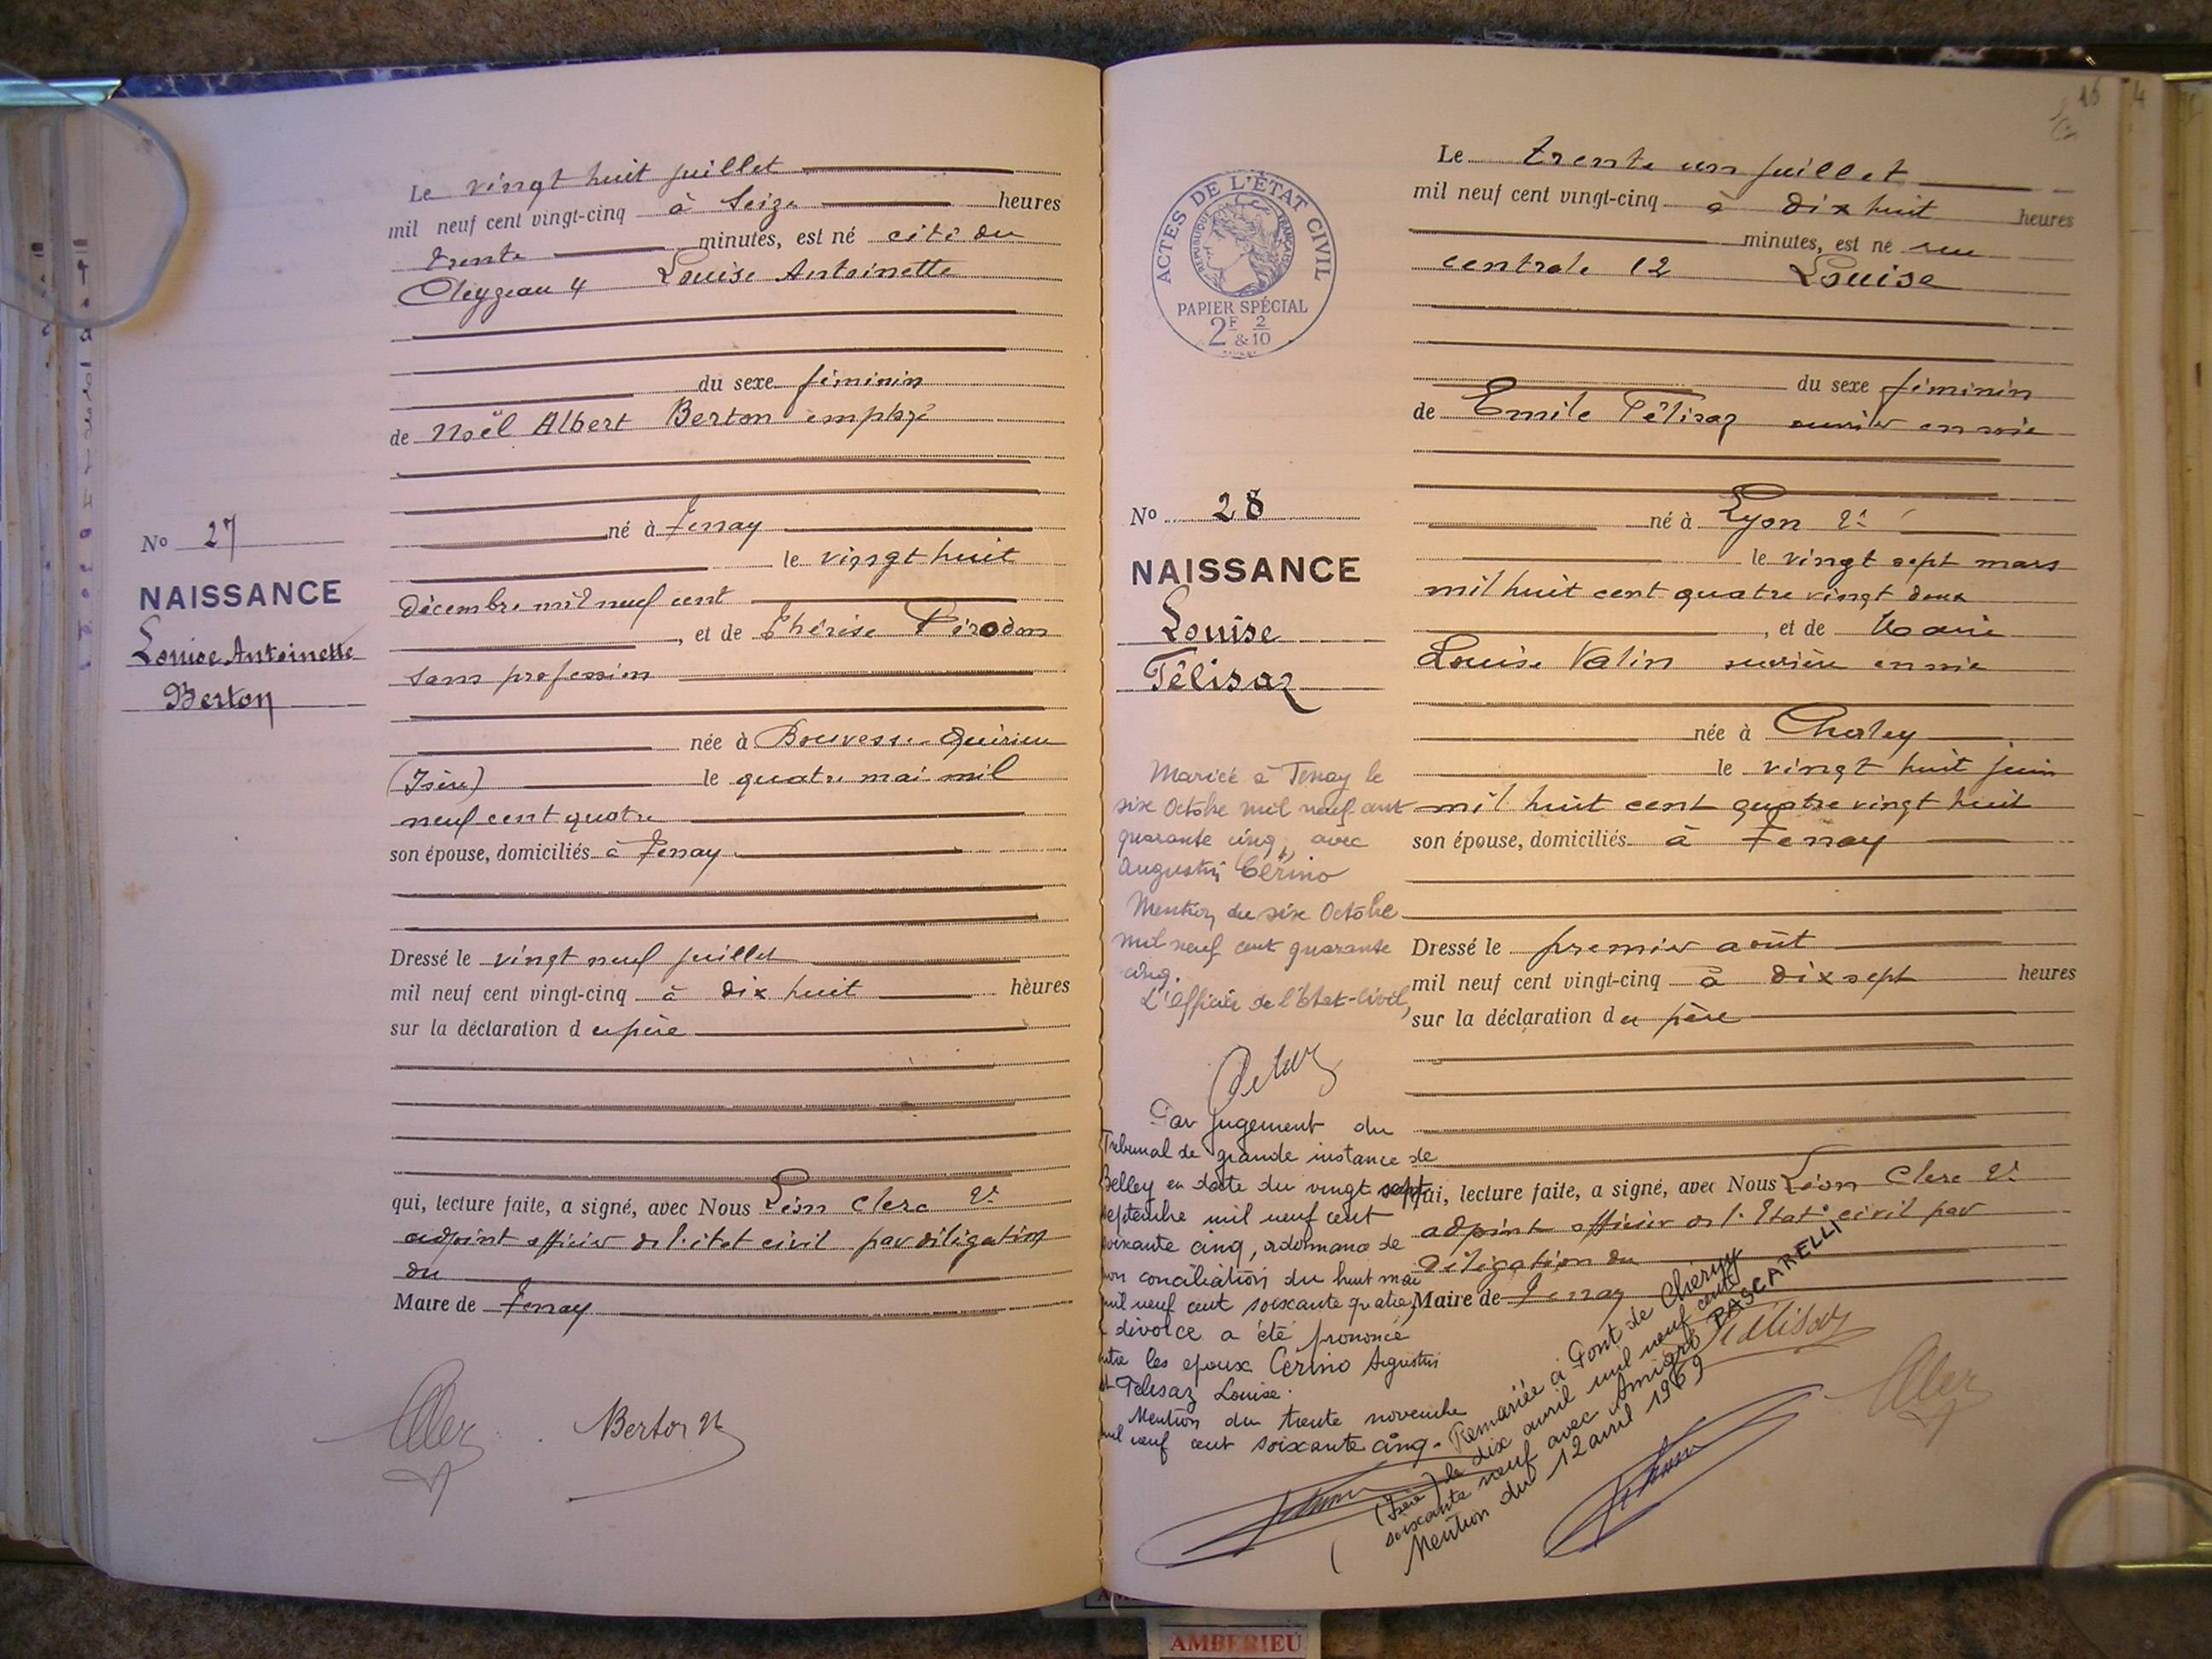 Le vingt huit juillet
mil neuf cent vingt-cinq à seize heures
trente minutes, est né cité du
Cleyzeau 4 Louise Antoinette
du sexe féminin
de Noël Albert Berton employé
né à Tenay
le vingt huit
décembre mil neuf cent
, et de Thérèse Pérodon
sans profession
née à Bouvesse-Quirieu
(Isère) le quatre mai mil
neuf cent quatre
son épouse, domiciliés à Tenay
Dressé le vingt neuf juillet
mil neuf cent vingt-cinq à dix huit heures
sur la déclaration du père
qui, lecture faite, a signé, avec Nous Léon Clerc 2e
adjoint officier de l'état civil par délégation
du
Maire de Tenay
Berton
No 27
NAISSANCE
Louise Antoinette
Berton
16
ACTES DE L'ÉTAT CIVIL
RÉPUBLIQUE FRANÇAISE
PAPIER SPÉCIAL
2F & 2/10
Le trente un juillet
mil neuf cent vingt-cinq à dix huit heures
minutes, est né rue
centrale 12 Louise
du sexe féminin
de Emile Télisaz ouvrier en soie
né à Lyon 2e
le vingt sept mars
mil huit cent quatre vingt deux
, et de Marie
Louise Valin ouvrière en soie
née à Charley
le vingt huit juin
mil huit cent quatre vingt huit
son épouse, domiciliés à Tenay
Dressé le premier août
mil neuf cent vingt-cinq à dix sept heures
sur la déclaration du père
qui, lecture faite, a signé, avec Nous Léon Clerc 2e
adjoint officier de l'Etat civil par
délégation du
Maire de Tenay
Télisaz
No 28
NAISSANCE
Louise
Télisaz
Mariée à Tenay le
six Octobre mil neuf cent
quarante cinq, avec
Augustin Cérino
Mention du six Octobre
mil neuf cent quarante
cinq.
L'Officier de l'Etat-Civil,
Par jugement du
Tribunal de grande instance de
Belley en date du vingt sept
septembre mil neuf cent
soixante cinq, ordonnance de
non conciliation du huit mai
mil neuf cent soixante quatre,
divorce a été prononcé
entre les époux Cérino Augustin
et Telisaz Louise.
Mention du trente novembre
mil neuf cent soixante cinq.
Remariée à Pont de Chéruy
(Isère) le dix avril mil neuf cent
soixante neuf avec Amigré PASCARELLI
Mention du 12 avril 1969
AMBERIEU